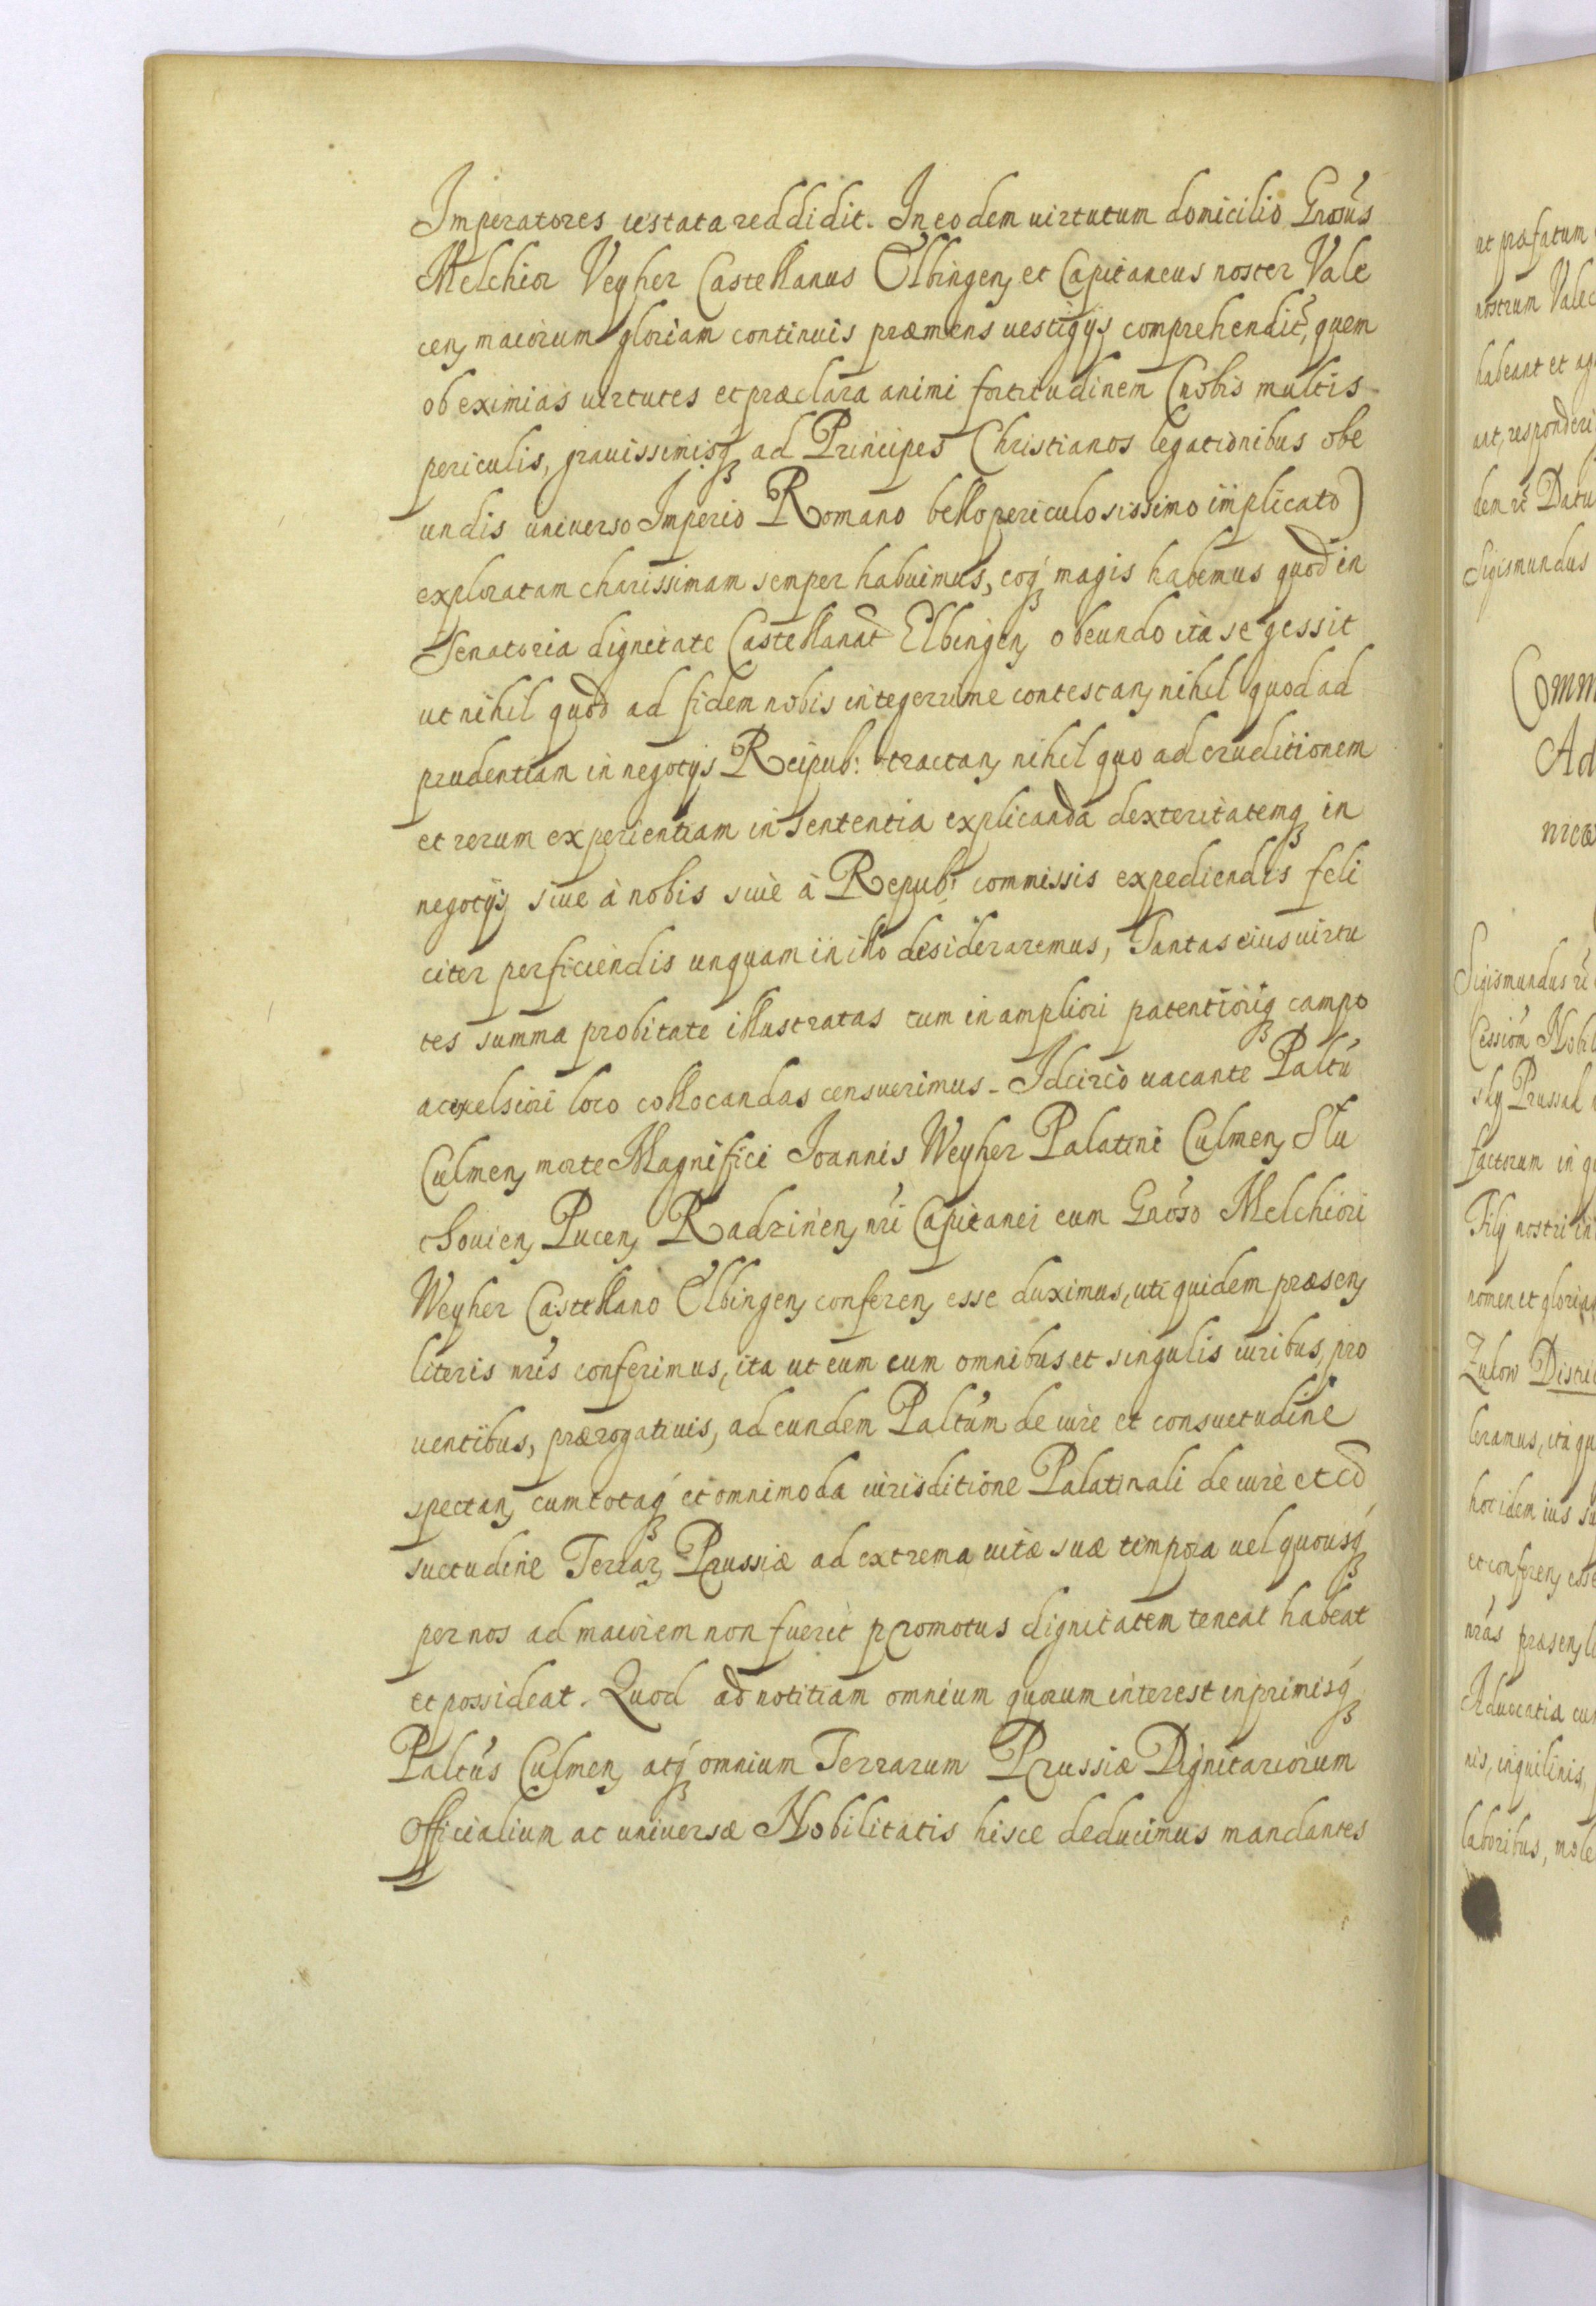 Imperatores testata reddidit. In eodem uirtutum domicilio Gnosus
Melchior Veyher Castellanus Elbingen, et Capitaneus noster Vale
cen, maiorum gloriam continuis præmens uestigijs comprehendit, quem
ob eximias uirtutes et præclara animi fortitudinem (nobis multis
periculis, grauissimisq ad Principes Christianos legationibus obe
undis uniuerso Imperio Romano bello periculosissimo implicato)
exploratam charissimam semper habuimus, eoq magis habemus quod in
Senatoria dignitate Castellanat Elbingen, obeundo ita se gessit
ut nihil quod ad fidem nobis integerrime contestan, nihil quod ad
prudentiam in negotijs Reipub: tractan, nihil quo ad eruditionem
et rerum experientiam in sententia explicanda dexteritatemq in
negotijs siue à nobis siue à Repub: commissis expediendis feli
citer perficiendis unquam in illo desideraremus, Tantas eius uirtu
tes summa probitate illustratas tum in ampliori patentioriq campo
ac excelsiori loco collocandas censuerimus. Idcirco uacante Paltu
Culmen, morte Magnifici Joannis Weyher Palatini Culmen, Slu
chouien, Pucen, Radzinen, nri Capitanei eum Gnoso Melchiori
Weyher Castellano Elbingen, conferen, esse duximus, uti quidem præsen,
literis nris conferimus, ita ut eum cum omnibus et singulis iuribus, pro
uentibus, prærogatiuis, ad eundem Paltum de iure et consuetudine
spectan, cum totaq et omnimoda iurisditione Palatinali de iure et co
suetudine Terrar, Prussiæ ad extrema uitæ suæ tempora uel quousq
per nos ad maiorem non fuerit promotus dignitatem teneat habeat
et possideat. Quod ad notitiam omnium quorum interest inprimisq
Paltus Culmen, atq omnium Terrarum Prussiæ Dignitariorum
Officialium ac uniuersæ Nobilitatis hisce deducimus mandantes
ut præfatum
nostrum Valec
habeant et ag
Datu
Sigismundus
Comm
Ad
nicæ
Sigismundus
Cession Nobil
factorum in q
Filij nostri in
nomen et gloriam
Zulow Distric
hoc idem ius su
et conferen, esse
nras præsen, li
Aduocatia cum
nis, inquilinis,
laboribus, mole